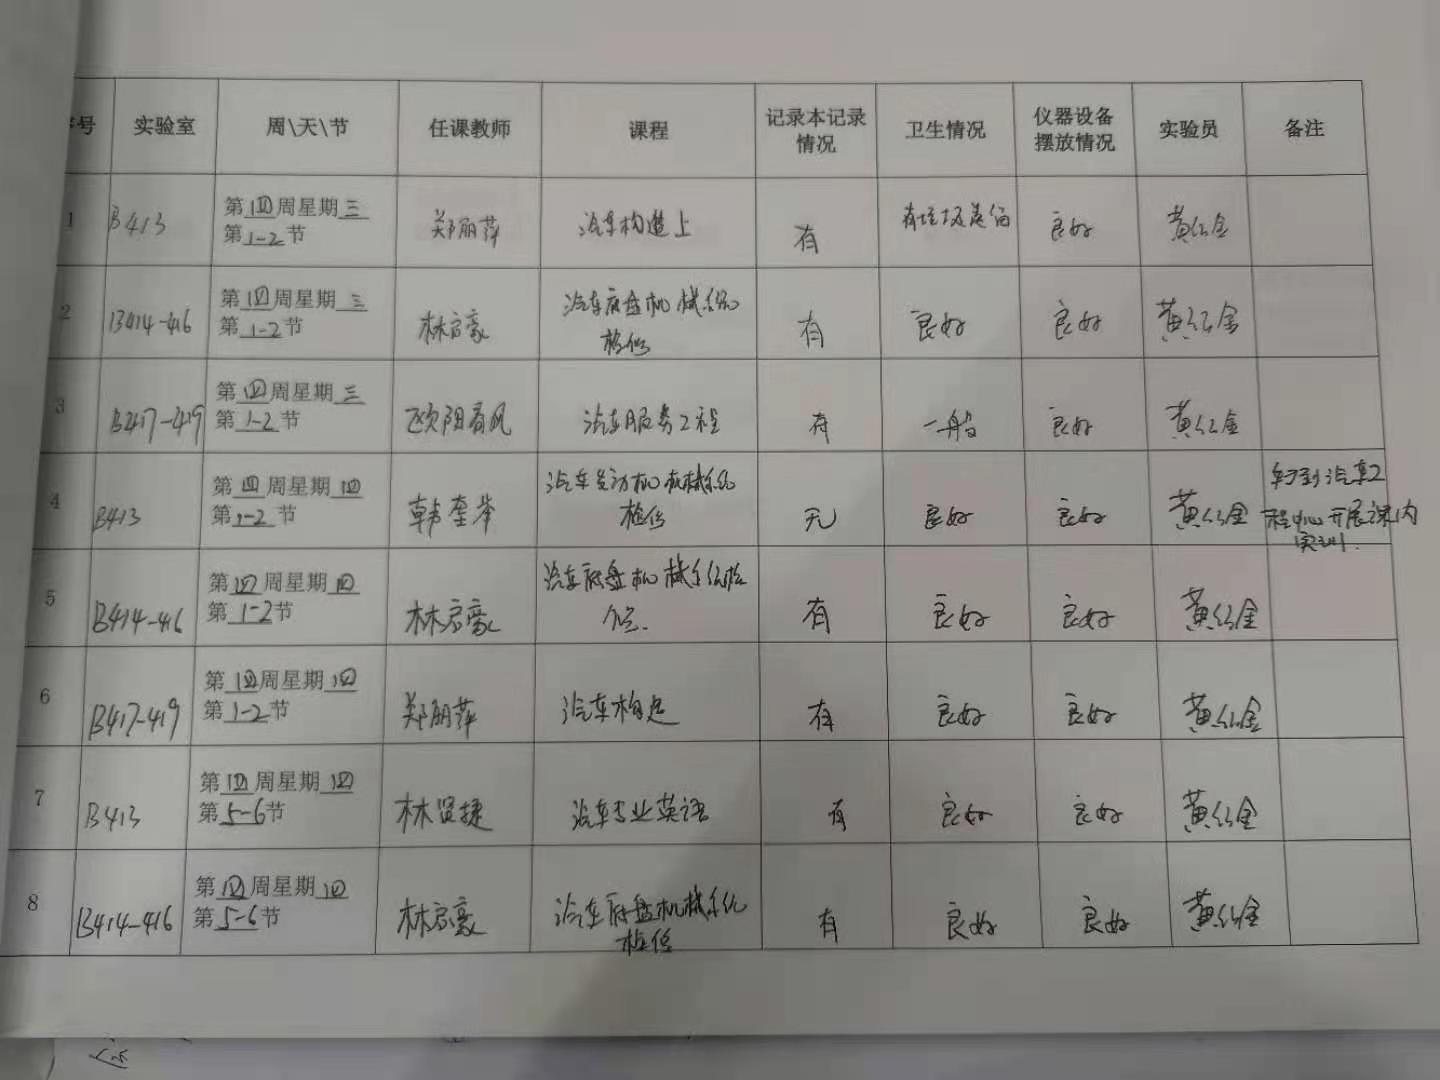 序号 实验室 周\天\节 任课教师 课程 记录本记录情况 卫生情况 仪器设备摆放情况 实验员 备注
1 B413 第四周星期三 郑丽萍 汽车构造上 有 有垃圾遗留 良好 黄红金
第1-2节
2 B414-416 第四周星期三 林启豪 汽车底盘机械系统 有 良好 良好 黄红金
第1-2节 检修
3 B417-419 第四周星期三 欧阳春风 汽车服务工程 有 一般 良好 黄红金
第1-2节
4 B413 第四周星期四 韩奎华 汽车发动机机械系统 无 良好 良好 黄红金 转到汽车工
第1-2节 检修 程中心开展课内
实训.
5 B414-416 第四周星期四 林启豪 汽车底盘机械系统检 有 良好 良好 黄红金
第1-2节 修.
6 B417-419 第四周星期四 郑丽萍 汽车构造 有 良好 良好 黄红金
第1-2节
7 B413 第四周星期四 林贤捷 汽车专业英语 有 良好 良好 黄红金
第5-6节
8 B414-416 第四周星期四 林启豪 汽车底盘机械系统 有 良好 良好 黄红金
第5-6节 检修